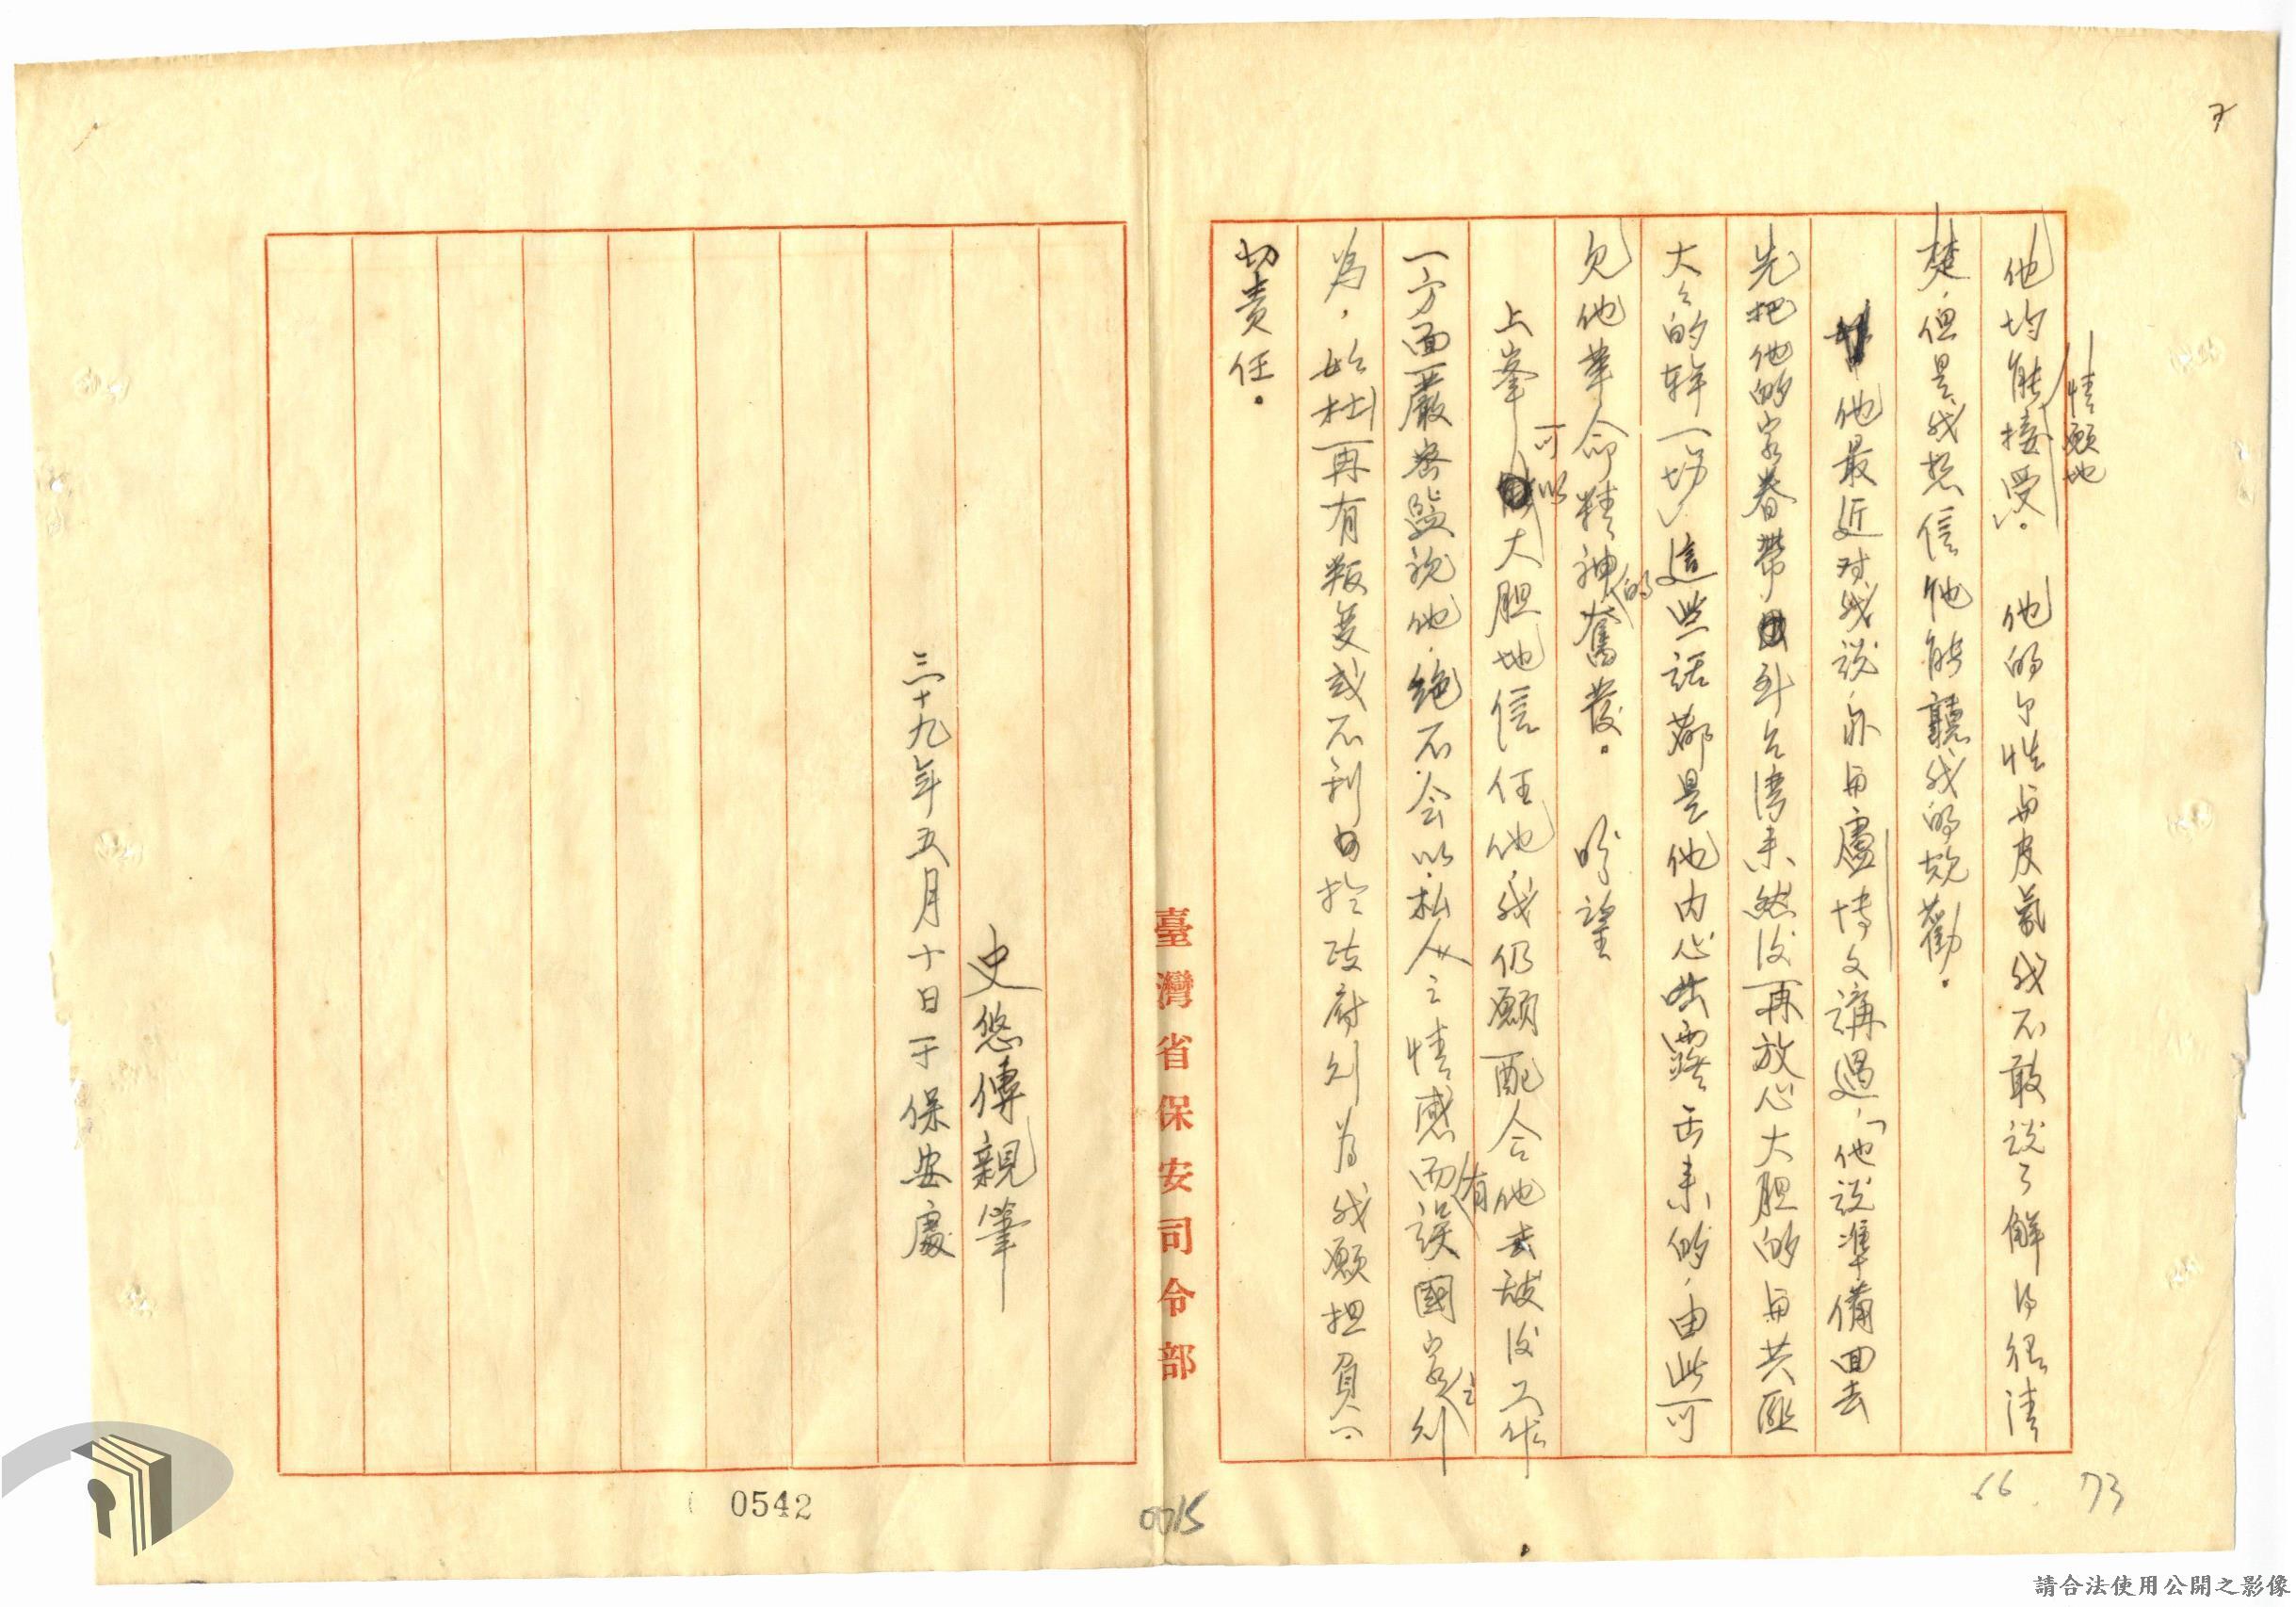 7
情願地
他均能接受。他的个性與皮氣我不敢說了解得很清
楚,但是我想信他能聽我的規勸。
他最近对我說,亦與盧博文講過,「他說準備回去
先把他的家眷帶到台湾來然後再放心大胆的與共匪
大大的幹一切」這些話都是他内心此露出來的,由此可
見他革命精神的奮發。盼望
上峯可以大胆地信任他,我仍願配合他去敵後工作
一方面嚴密監視他,絶不会以私人之情感而有誤國家之利
為,如杜再有叛变或不利於政府則為我願担負一
切責任。
臺灣省保安司令部
史悠傳親筆
三十九年五月十日于保安處
0542
0015
66
73
請合法使用公開之影像